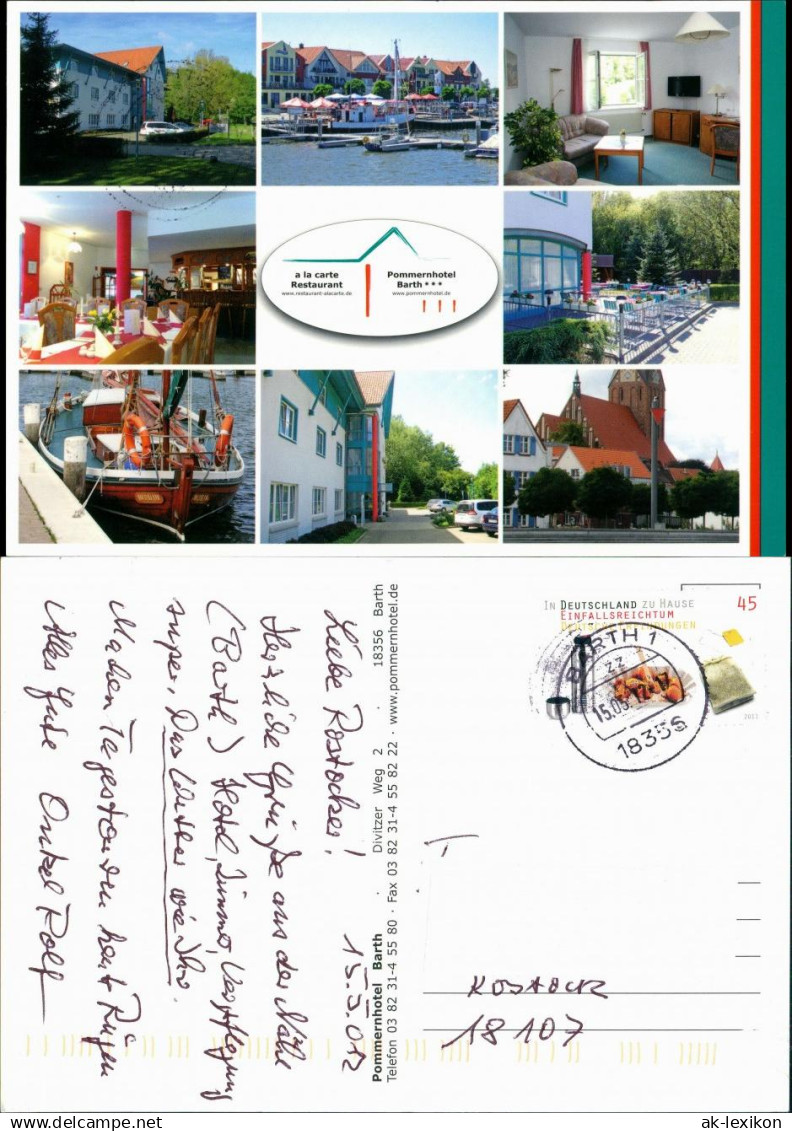 a la carte
Restaurant
www.restaurant-alacarte.de
Pommernhotel
Barth ***
www.pommernhotel.de
Liebe Rostocker! 15.5.012
Herzliche Grüße aus der Nähe
(Barth) Hotel, Zimmer, Verpflegung
super. Das Wetter wie Ihr.
Machen Tagestouren heut Rügen
Alles Gute Onkel Rolf
Pommernhotel Barth · Divitzer Weg 2 · 18356 Barth
Telefon 03 82 31-4 55 80 · Fax 03 82 31-4 55 82 22 · www.pommernhotel.de
IN DEUTSCHLAND ZU HAUSE
EINFALLSREICHTUM
45
2011
BARTH 1
zz
15.05.12-17
18356
ROSTOCK
18107
ak-ansichtskarten.de
ak-lexikon.com